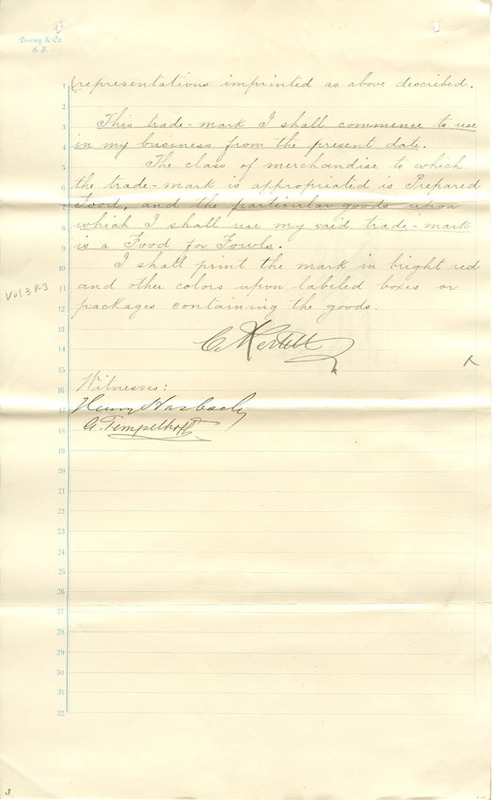 Dewey & Co.
S. F.
1 representations imprinted as above described.
2
3 This trade-mark I shall commence to use
4 in my business from the present date.
5 The class of merchandise to which
6 the trade-mark is appropriated is Prepared
7 Food, and the particular goods upon
8 which I shall use my said trade-mark
9 is a Food for Fowls.
10 I shall print the mark in bright red
11 and other colors upon labeled boxes or
12 packages containing the goods.
Vol 3 P.3
13
14 C.
15
16 Witnesses:
17 Henry
18 A. Tempelhoff
19
20
21
22
23
24
25
26
27
28
29
30
31
32